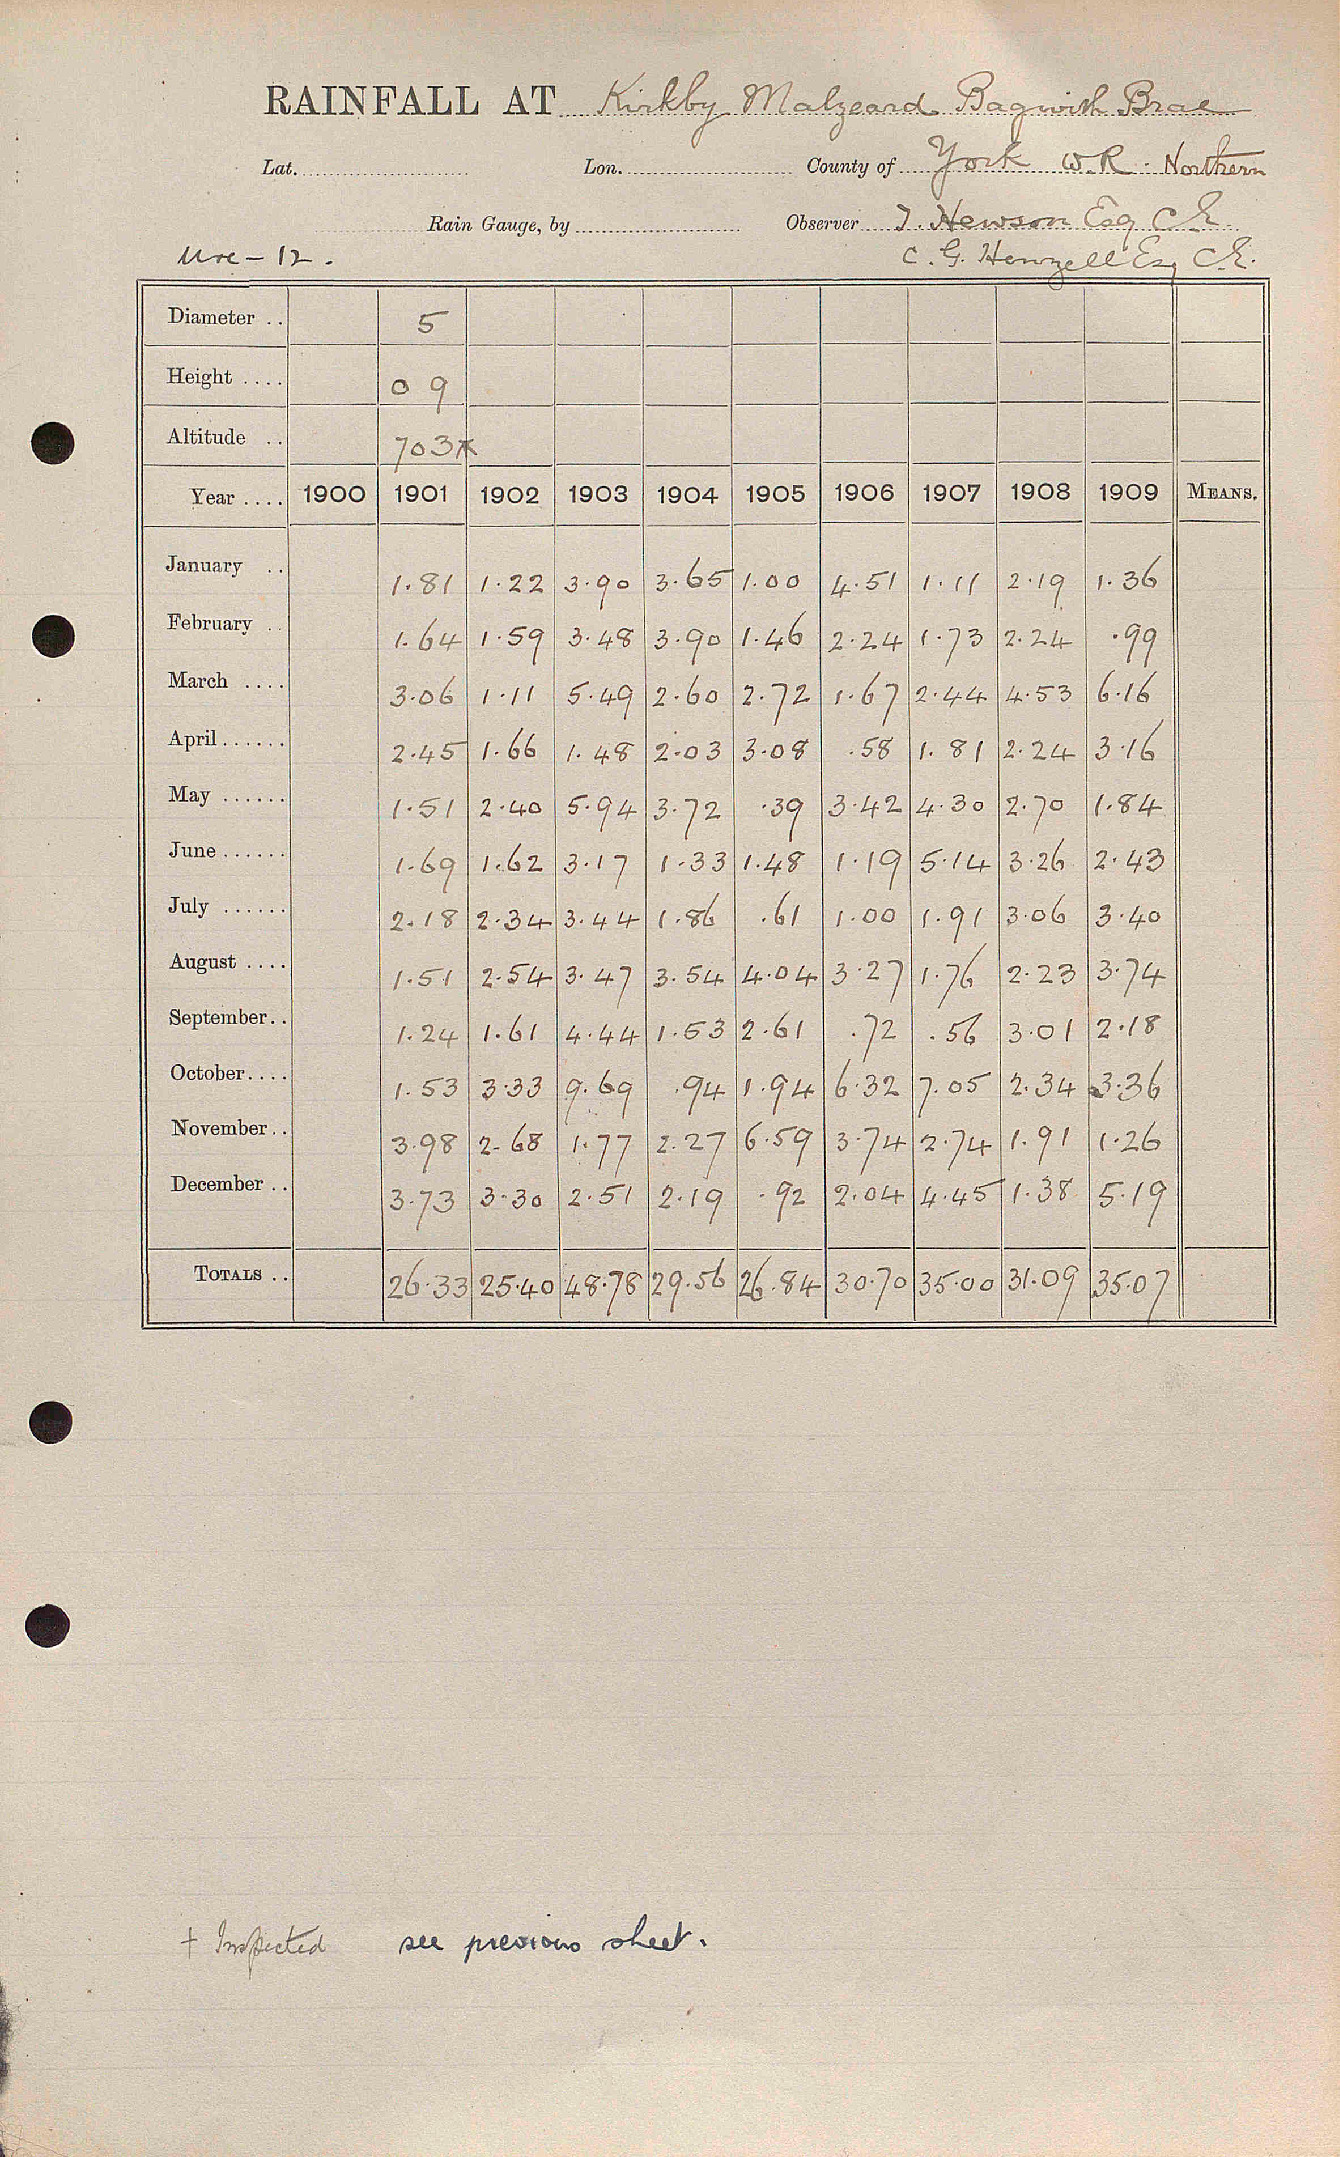 RAINFALL AT Kirkby Malzeard Bagwith Brae
Lat. Lon. County of York W.R. Northern
Rain Gauge, by Observer T. Hewson Esq C.E.
Ure - 12. C. G. Henzell Esq C.E.
Diameter .. 5
Height .... 0 9
Altitude .. 703
Year .... 1900 1901 1902 1903 1904 1905 1906 1907 1908 1909 MEANS.
January .. 1.81 1.22 3.90 3.65 1.00 4.51 1.11 2.19 1.36
February .. 1.64 1.59 3.48 3.90 1.46 2.24 1.73 2.24 .99
March .... 3.06 1.11 5.49 2.60 2.72 1.67 2.44 4.53 6.16
April ...... 2.45 1.66 1.48 2.03 3.08 .58 1.81 2.24 3.16
May ...... 1.51 2.40 5.94 3.72 .39 3.42 4.30 2.70 1.84
June ...... 1.69 1.62 3.17 1.33 1.48 1.19 5.14 3.26 2.43
July ...... 2.18 2.34 3.44 1.86 .61 1.00 1.91 3.06 3.40
August .... 1.51 2.54 3.47 3.54 4.04 3.27 1.76 2.23 3.74
September.. 1.24 1.61 4.44 1.53 2.61 .72 .56 3.01 2.18
October.... 1.53 3.33 9.69 .94 1.94 6.32 7.05 2.34 3.36
November.. 3.98 2.68 1.77 2.27 6.59 3.74 2.74 1.91 1.26
December .. 3.73 3.30 2.51 2.19 .92 2.04 4.45 1.38 5.19
TOTALS .. 26.33 25.40 48.78 29.56 26.84 30.70 35.00 31.09 35.07
† Inspected see previous sheet.